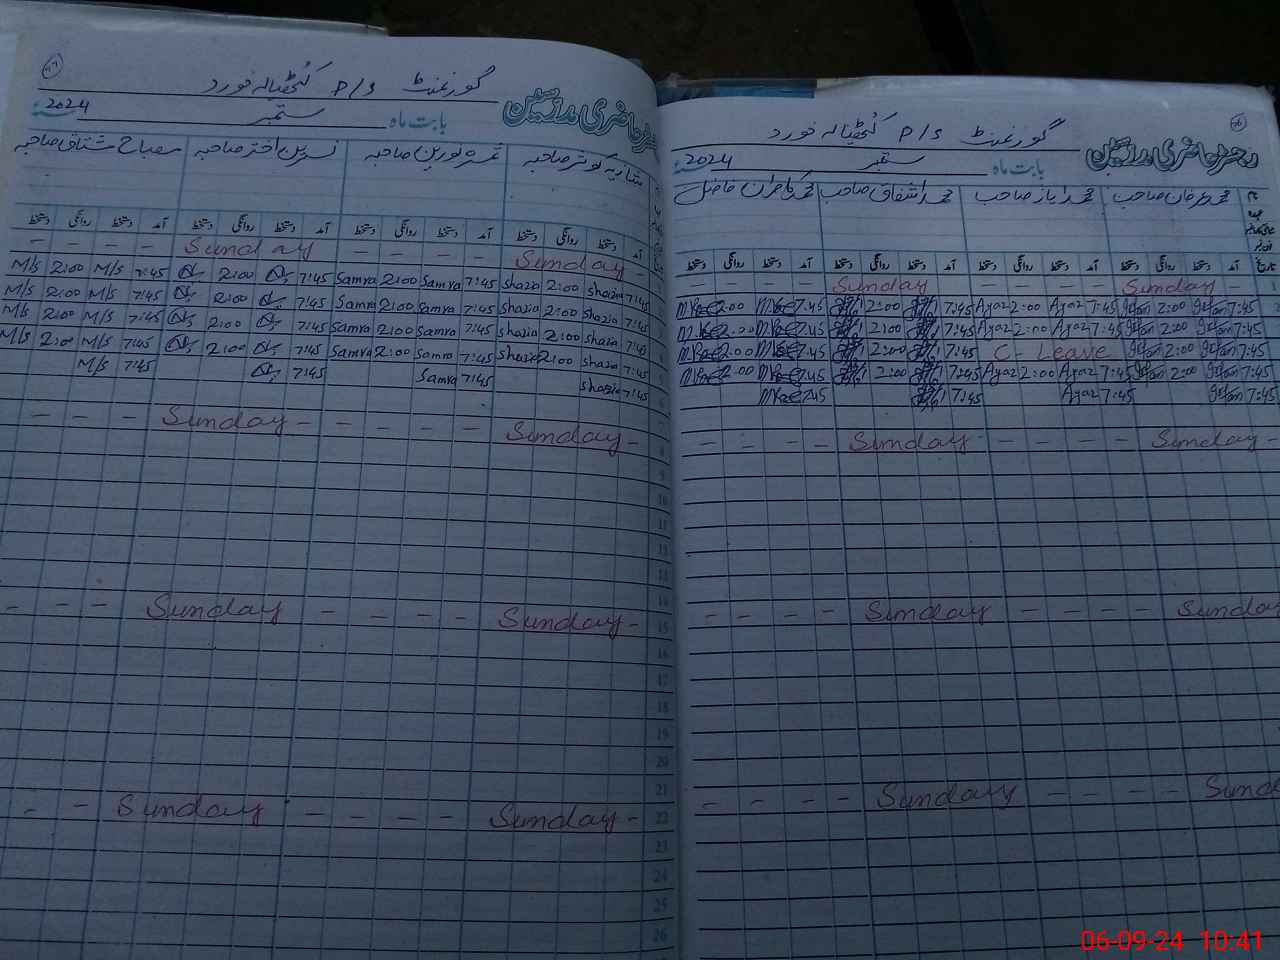 گورنمنٹ P/S کٹھیالہ خورد
رجسٹر حاضری مدرسین
بابت ماہ ستمبر 2024
محمد عرفان صاحب محمد ایاز صاحب محمد اشفاق صاحب محمد کامران فاضل
آمد دستخط روانگی دستخط آمد دستخط روانگی دستخط آمد دستخط روانگی دستخط آمد دستخط روانگی دستخط
— — — — Sunday — — — — Sunday —
2:00 7:45 2:00 7:45 Ayaz 2:00 Ayaz 7:45 Irfan 2:00 Irfan 7:45
2:00 7:45 2:00 7:45 Ayaz 2:00 Ayaz 7:45 Irfan 2:00 Irfan 7:45
2:00 7:45 2:00 7:45 C - Leave Irfan 2:00 Irfan 7:45
2:00 7:45 2:00 7:45 Ayaz 2:00 Ayaz 7:45 Irfan 2:00 Irfan 7:45
7:45 7:45 Ayaz 7:45 Irfan 7:45
— — — — Sunday — — — — Sunday —
— — — — Sunday — — — — Sunday
— — — — Sunday — — — — Sunday
گورنمنٹ P/S کٹھیالہ خورد
رجسٹر حاضری مدرسین
بابت ماہ ستمبر 2024
شازیہ کوثر صاحبہ ثمرہ نورین صاحبہ نسرین اختر صاحبہ مصباح مشتاق صاحبہ
آمد دستخط روانگی دستخط آمد دستخط روانگی دستخط آمد دستخط روانگی دستخط آمد دستخط روانگی دستخط
— — — — Sunday — — — — Sunday —
M/S 2:00 M/S 7:45 2:00 7:45 Samra 2:00 Samra 7:45 Shazia 2:00 Shazia 7:45
M/S 2:00 M/S 7:45 2:00 7:45 Samra 2:00 Samra 7:45 Shazia 2:00 Shazia 7:45
M/S 2:00 M/S 7:45 2:00 7:45 Samra 2:00 Samra 7:45 Shazia 2:00 Shazia 7:45
M/S 2:00 M/S 7:45 2:00 7:45 Samra 2:00 Samra 7:45 Shazia 2:00 Shazia 7:45
M/S 7:45 7:45 Samra 7:45 Shazia 7:45
— — — Sunday — — — — — Sunday — 8
9
10
11
12
13
14
— — — Sunday — — — — Sunday — 15
16
17
18
19
20
21
— — Sunday — — — — Sunday — 22
23
24
25
26
06-09-24 10:41